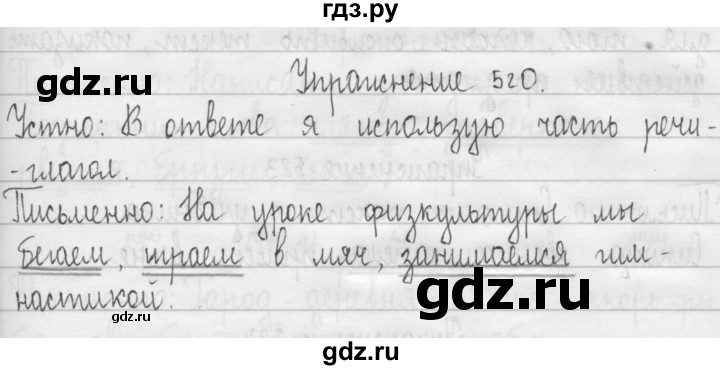 гдз.ру
Упражнение 520.
Устно: В ответе я использую часть речи-
-глагол.
Письменно: На уроке физкультуры мы
бегаем, играем в мяч, занимаемся гим-
настикой.
gdz.ru
gdz.ru
gdz.ru
gdz.ru